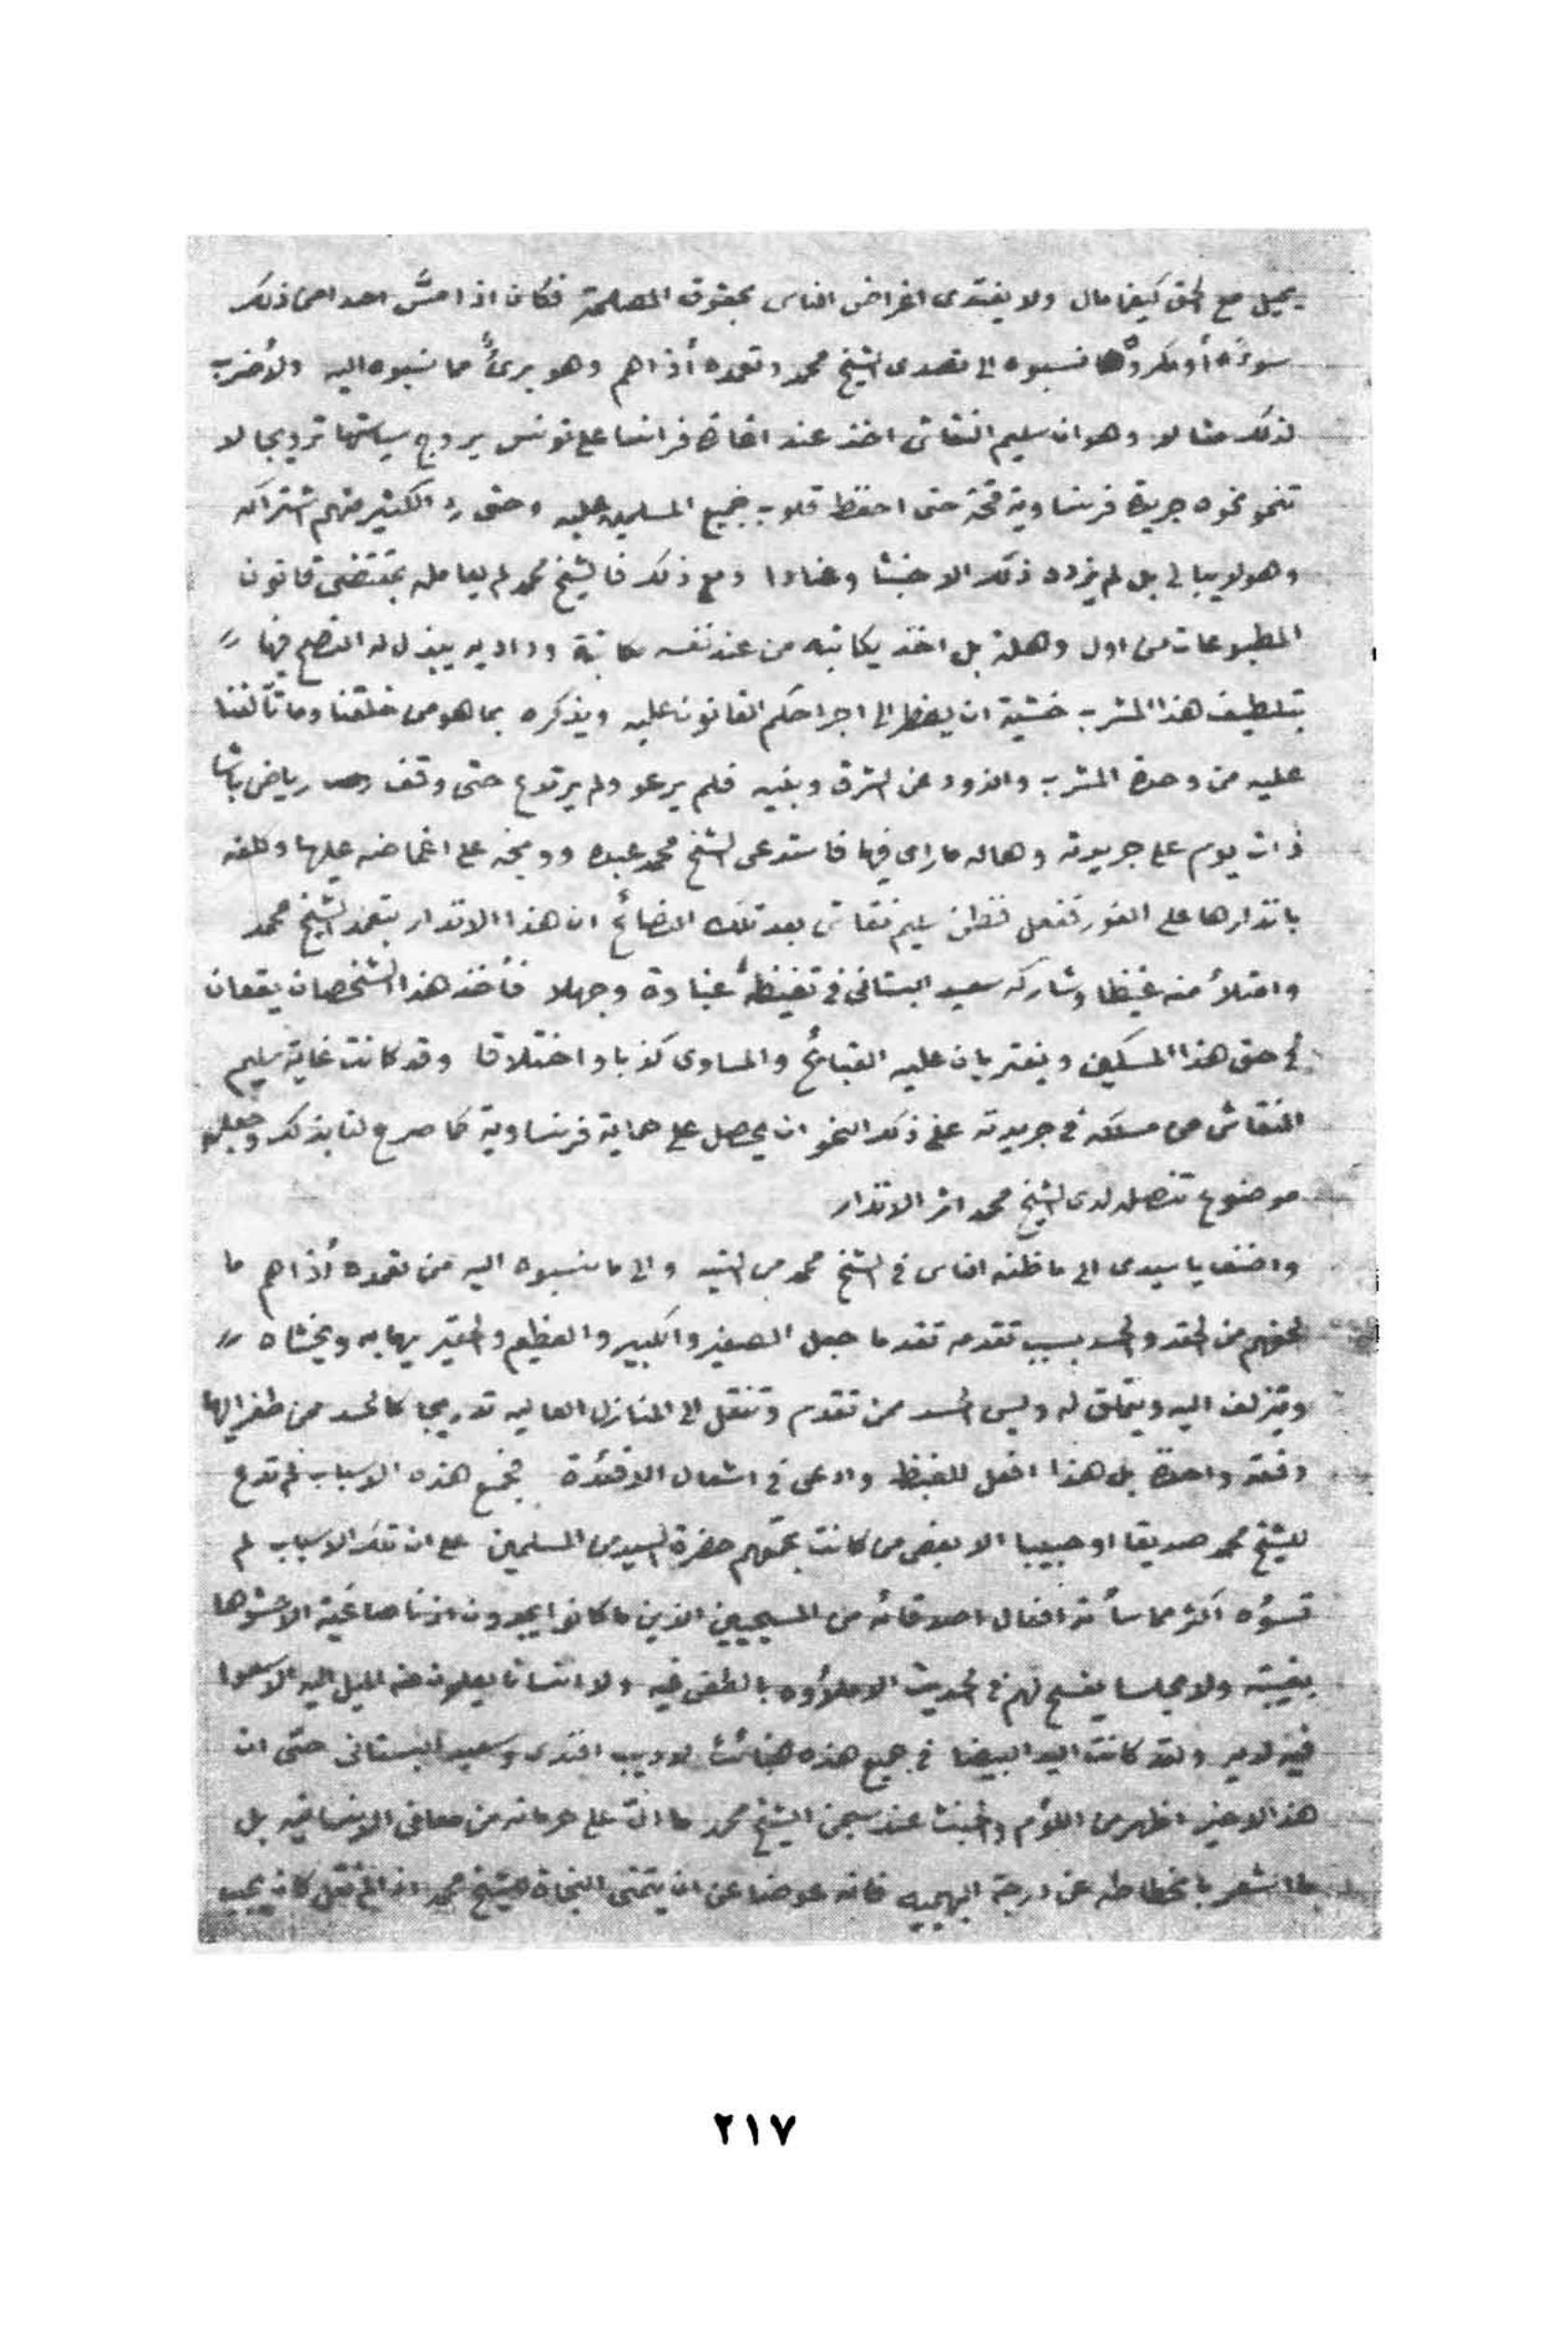 يميل مع الحق كيفما مال ولا يفتدى اغراض الناس بحقوق المصلحة فكان اذا مسَّ احدا من ذلك
سوءٌ أو مكروهٌ نسبوه الى تصدى الشيخ محمد وتعمده أذاهم وهو برئٌ مما نسبوه اليه ولأضرب
لذلك مثالا وهو ان سليم النقاش اخذ عند اغارة فرانسا على تونس يروج سياستها ترويجا لا
تنحو نحوه جريدة فرنساوية محضة حتى احفظ قلوب جميع المسلمين عليه وحتى رد الكثير منهم اشتراكه
وهو لا يبالى بل لم يزده ذلك الا خبثا وعنادا ومع ذلك فالشيخ محمد لم يعامله بمقتضى قانون
المطبوعات من اول وهلة بل اخذ يكاتبه من عند نفسه مكاتبة وداديه يبذل له النصح فيها
بتلطيف هذا المشرب خشية ان يضطر الى اجرا حكم القانون عليه ويذكره بما هو من خلقنا وما تآلفنا
عليه من وحدة المشرب والذود عن الشرق وبنيه فلم يرعو ولم يرتدع حتى وقف رياض باشا
ذات يوم على جريدته وهاله ما راى فيها فاستدعى الشيخ محمد عبده ووبخه على اغماضه عليها وكلفه
بانذارها على الفور ففعل فظن سليم نقاش بعد تلك النصائح ان هذا الانذار بتعمد الشيخ محمد
وامتلأ منه غيظا وشاركه سعيد البستانى فى تغيظه غباوة وجهلا فأخذ هذا الشخصان يقعان
فى حق هذا المسكين ويفتريان عليه القبائح والمساوى كذبا واختلاقا وقد كانت غاية سليم
النقاش من مسلكه فى جريدته على ذلك النحو ان يحصل على حماية فرنساوية كما صرح لنا بذلك وجعله
موضوع تنصله لدى الشيخ محمد اثر الانذار
واضف يا سيدى الى ما ظنه الناس فى الشيخ محمد من التيه والى ما نسبوه اليه من تعمده أذاهم ما
لحقهم من الحقد والحسد بسبب تقدمه تقدما جعل الصغير والكبير والعظيم والحقير يهابه ويخشاه
ويتزلف اليه ويتملق له وليس الحسد ممن تقدم وتنقل الى المنازل العاليه تدريجا كالحسد ممن طفر اليها
دفعة واحدة بل هذا افعل للغيظ وادعى فى اشعال الافئدة فجميع هذه الاسباب لم تدع
للشيخ محمد صديقا او حبيبا الا بعض من كانت تجمعهم حضرة السيد من المسلمين على ان تلك الاسباب لم
تسؤه اكثر مما ساءته افعال اصدقائه من المسيحيين الذين ما كانوا يجدون اذنا صاغية الا حشوها
بغيبته ولا مجلسا يفسح لهم فى الحديث الا ملأوه بالطعن فيه ولا انسانا يعلمون منه الميل اليه الا سعوا
فيه لديه ولقد كانت اليد البيضا فى جميع هذه الخبائث لاديب افندى وسعيد البستانى حتى ان
هذا الاخير اظهر من اللؤم والخبث عند سجن الشيخ محمد ما دل على حرمانه من معانى الانسانيه بل
ما اشعر بانحطاطه عن درجة البهيميه فانه عوضا عن ان يتمنى النجاة للشيخ محمد كان يجيب
٢١٧